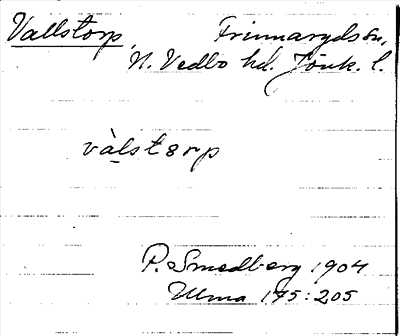 Vallstorp, Frinnaryds sn,
N. Vedbo hd. Jönk. l.
vàlstorp
P. Smedberg 1904
Ulma 175:205